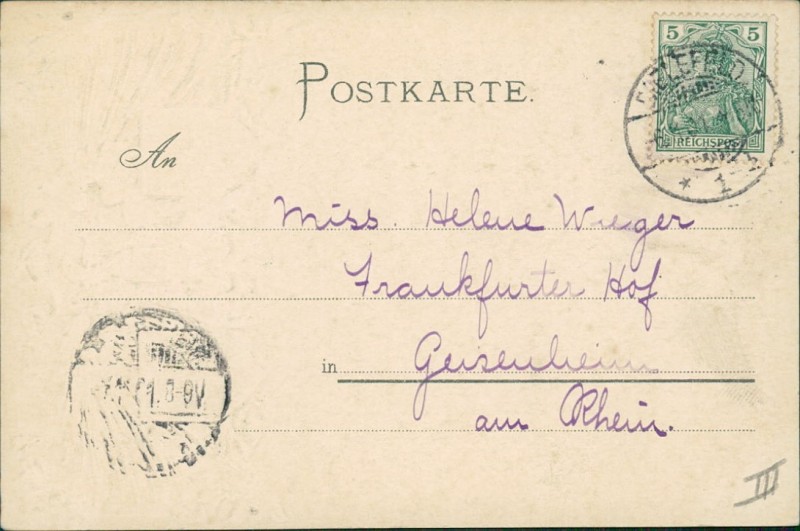 5 5
REICHSPOST
BIELEFELD
* 1
POSTKARTE.
An
Miss. Helene Wieger
Frankfurter Hof
in Geisenheim
am Rhein.
1. 8-9V
III